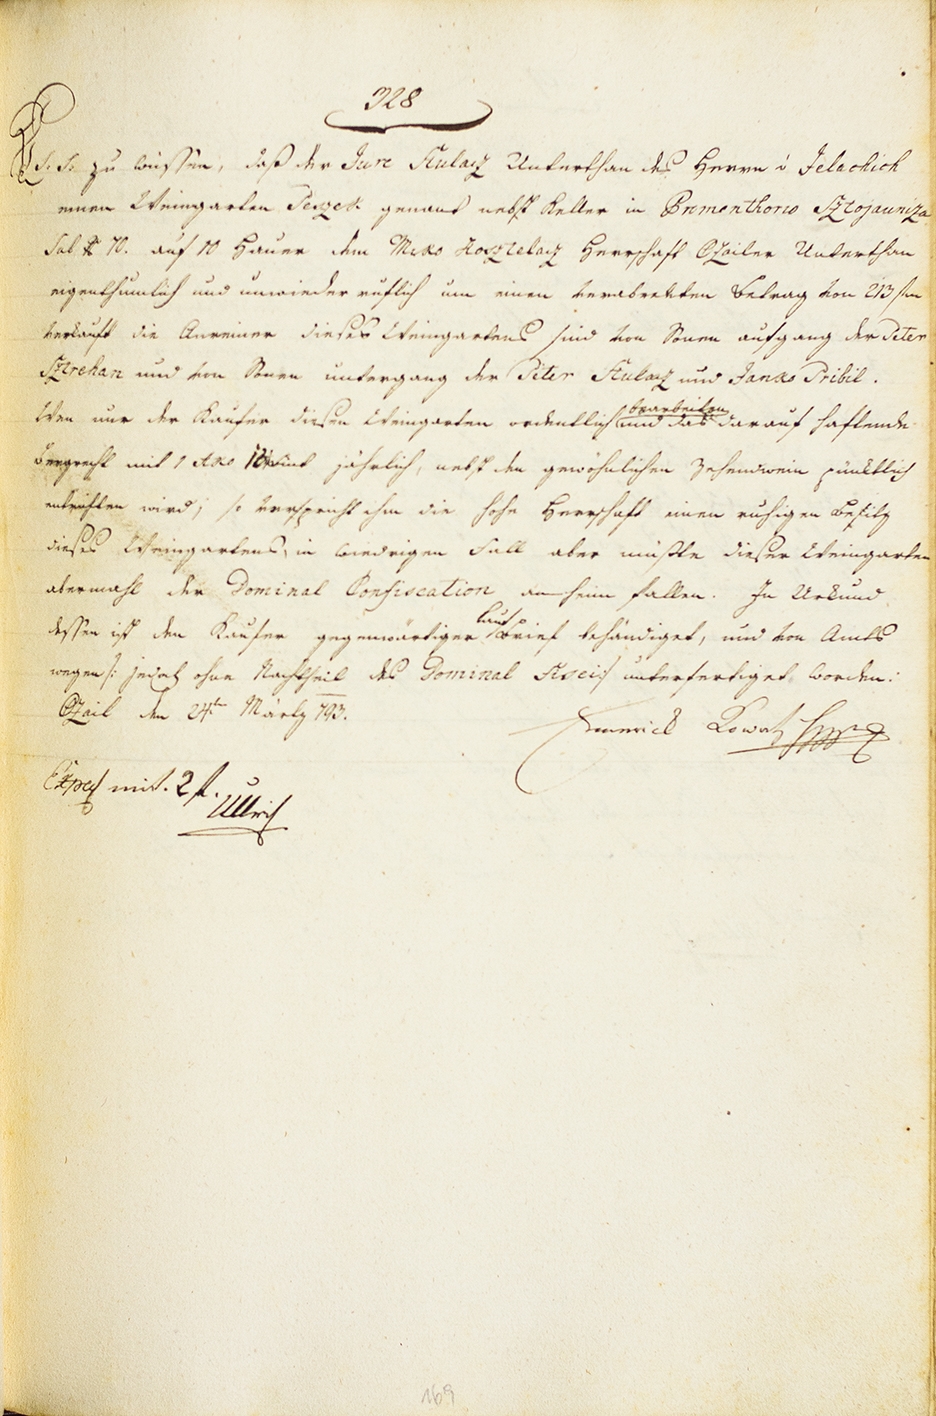 328
Es ist zu wissen, daß der Jure Kulacz Unterthan des Herrn v Jelachich
einen Weingarten Peszek genant nebst Keller in Promenthorio Sztojauniza
Sub N 70. auf 10 Hauer dem Miko Kosztelacz Herrschaft Ozailer Unterthan
eigenthumlich und unwiederruflich um einen verabredten Betrag von 213 fl
verkauft die Anreiner dieses Weingartens sind von Sonen aufgang der Peter
Sztrehan und von Sonen untergang der Peter Kulacz und Janko Pribil.
Wen nur der Kaufer diesen Weingarten ordentlich bearbeiten und das darauf haftende
Bergrecht mit 1 Ako 10 Pint jährlich, nebst den gewöhnlichen Zehendwein pünktlich
entrichten wird; so verspricht ihm die hohe Herrschaft einen ruhigen Besitz
dieses Weingartens, in wiedrigen Fall aber müßte dieser Weingarten
abermahl der Dominal Confiscation anheim fallen. In Urkund
dessen ist dem Kaufer gegenwärtiger Kauf Brief behändiget, und von Amts
wegen /: jedoch ohne Nachtheil des Dominal Fisci :/ unterfertiget worden.
Ozail den 24ten März 793.
Emerich Kowats
Exped mit. 2 fl.
Ullrich
169